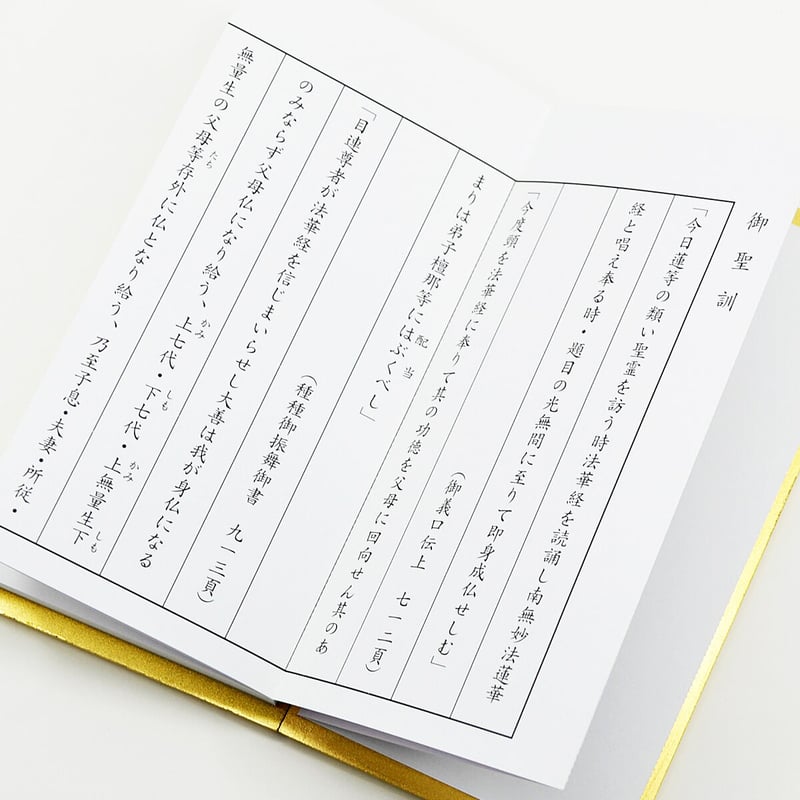 御聖訓
「今日蓮等の類い聖霊を訪う時法華経を読誦し南無妙法蓮華
経と唱え奉る時・題目の光無間に至りて即身成仏せしむ」
（御義口伝上　七一二頁）
「今度頭を法華経に奉りて其の功徳を父母に回向せん其のあ
まりは弟子檀那等にはぶく配当べし」
（種種御振舞御書　九一三頁）
「目連尊者が法華経を信じまいらせし大善は我が身仏になる
のみならず父母仏になり給う、上かみ七代・下しも七代・上かみ無量生下しも
無量生の父母等たち存外に仏となり給う、乃至子息・夫妻・所従・